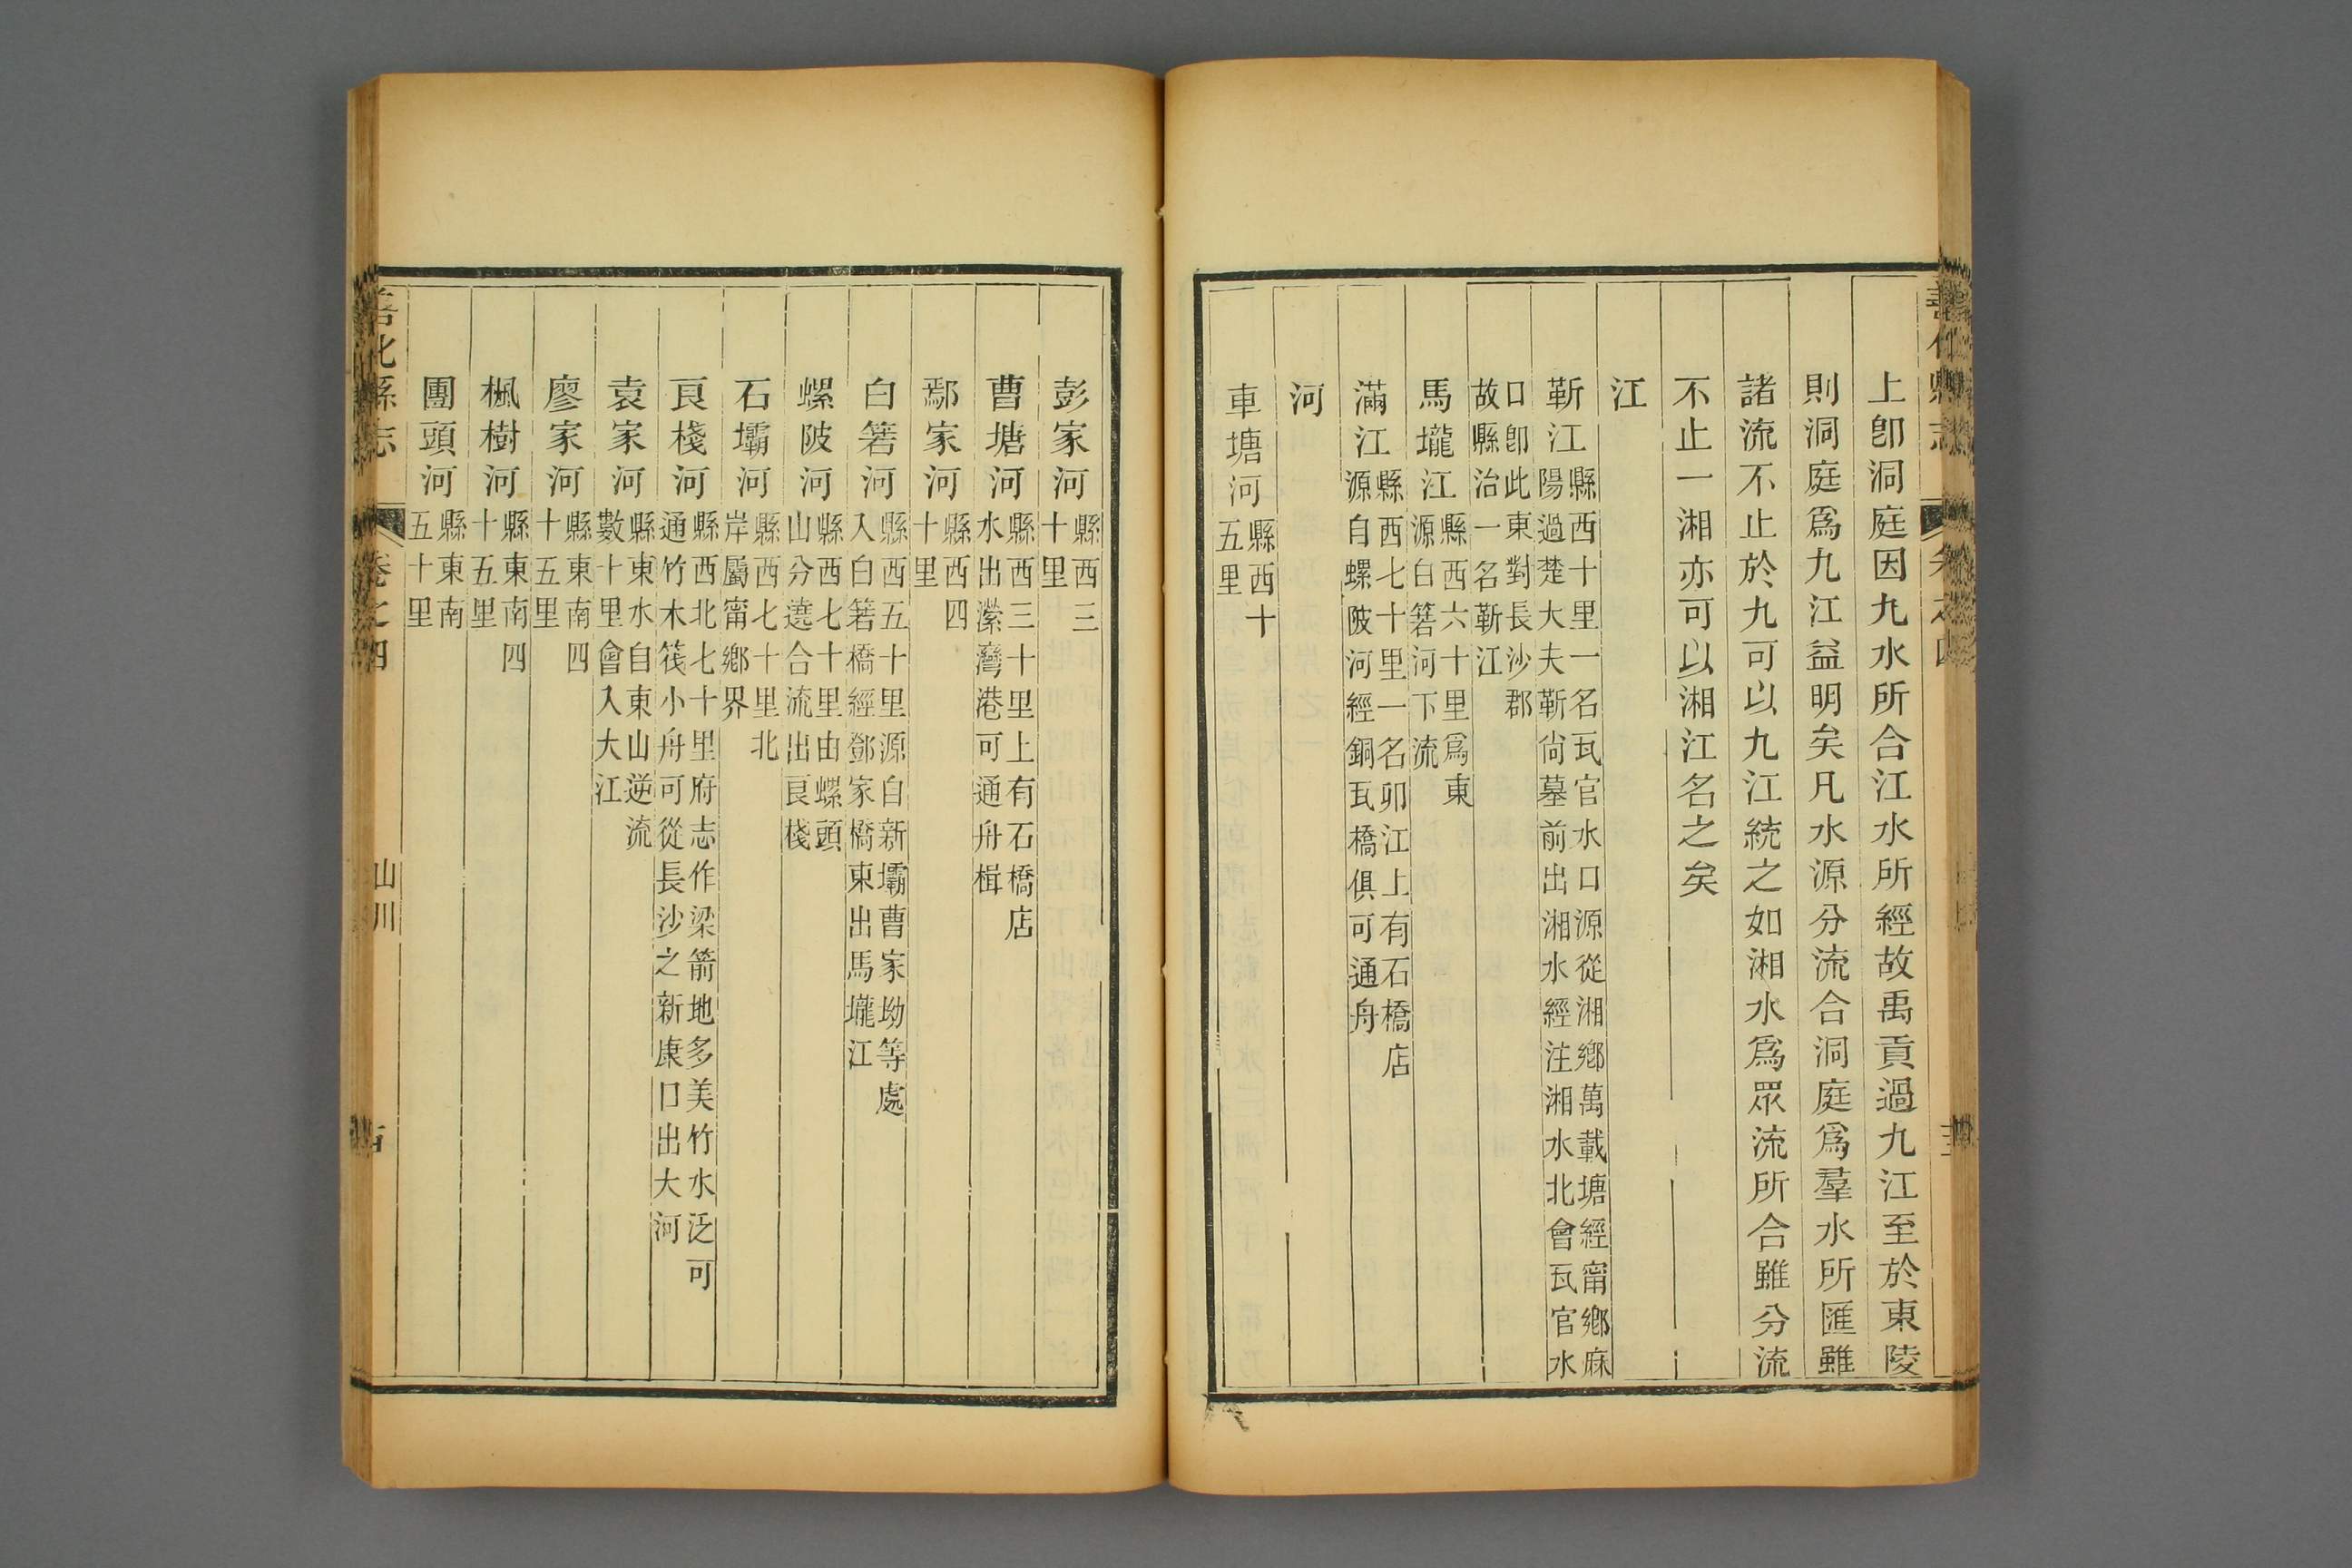 上卽洞庭因九水所合江水所經故禹貢過九江至於東陵
則洞庭爲九江益明矣凡水源分流合洞庭爲羣水所匯雖
諸流不止於九可以九江統之如湘水爲眾流所合雖分流
不止一湘亦可以湘江名之矣
江
靳江縣西十里一名瓦官水口源從湘鄉萬載塘經甯鄉麻
陽過楚大夫靳尙墓前出湘水經注湘水北會瓦官水
口卽此東對長沙郡
故縣治一名靳江
馬壠江縣西六十里爲東
源白箬河下流
滿江縣西七十里一名卯江上有石橋店
源自螺陂河經銅瓦橋俱可通舟
河
車塘河縣西十
五里
彭家河縣西三
十里
曹塘河縣西三十里上有石橋店
水出濴灣港可通舟楫
鄢家河縣西四
十里
白箬河縣西五十里源白新壩曹家坳等處
入白箬橋經鄧家橋東出馬壠江
螺陂河縣西七十里由螺頭
山分遶合流出艮棧
石壩河縣西七十里北
岸屬甯鄉界
艮棧河縣西北七十里府志作梁箭地多美竹水泛可
通竹木筏小舟可從長沙之新康口出大河
袁家河縣東水自東山逆流
數十里會入大江
廖家河縣東南四
十五里
楓樹河縣東南四
十五里
團頭河縣東南
五十里
善化縣志
卷之四
山川